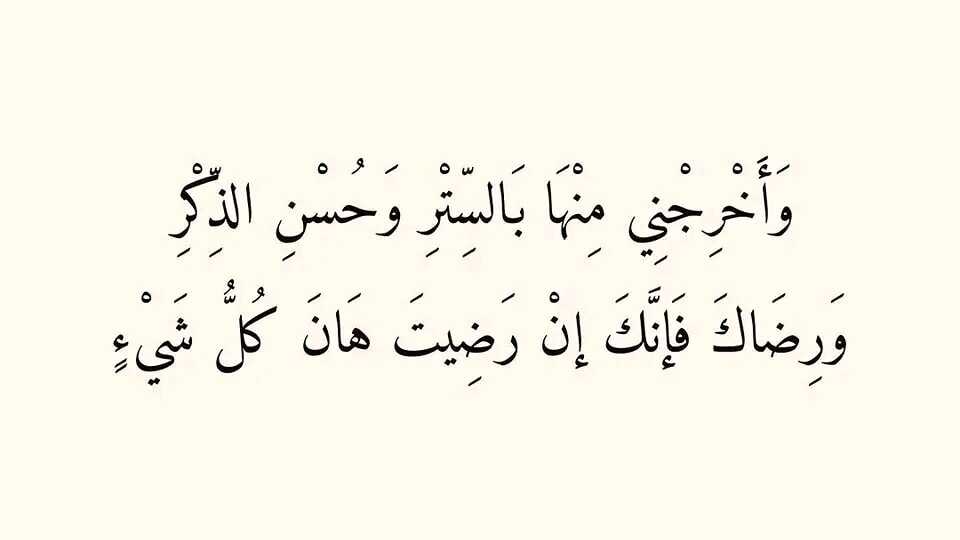 وَأَخْرِجْنِي مِنْهَا بَالسِّتْرِ وَحُسْنِ الذِّكْرِ
وَرِضَاكَ فَإِنَّكَ إِنْ رَضِيتَ هَانَ كُلُّ شَيْءٍ